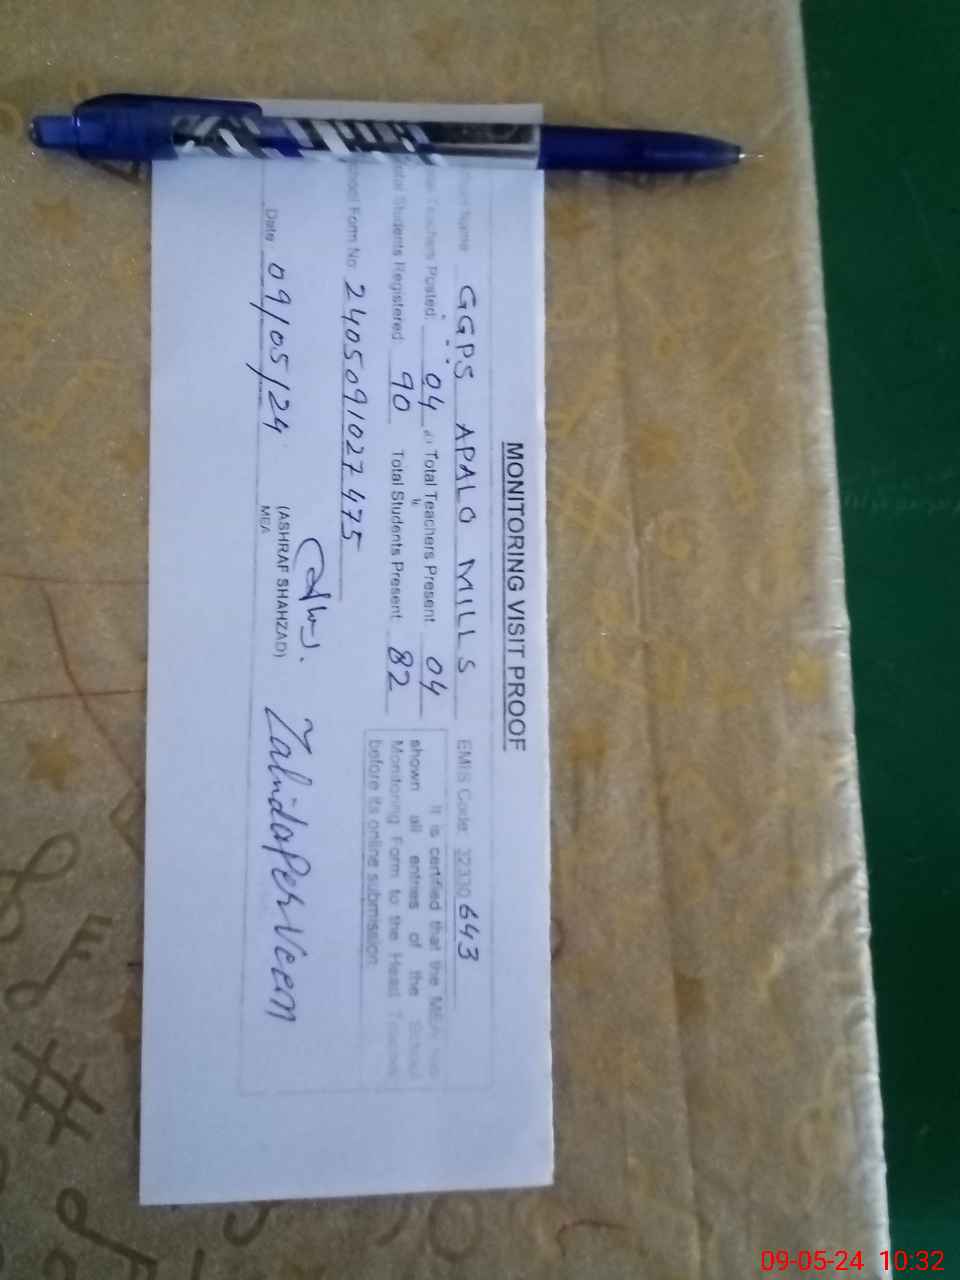 MONITORING VISIT PROOF
Name GGPS APALO MILLS EMIS Code: 32330 643
Teachers Posted: 04 Total Teachers Present 04
Students Registered: 90 Total Students Present 82
It is certified that the MEA has
shown all entries of the School
Monitoring Form to the Head Teacher
before its online submission.
Form No 2405091027475
Date 09/05/24
(ASHRAF SHAHZAD)
MEA
Zahida Perveen
09-05-24 10:32